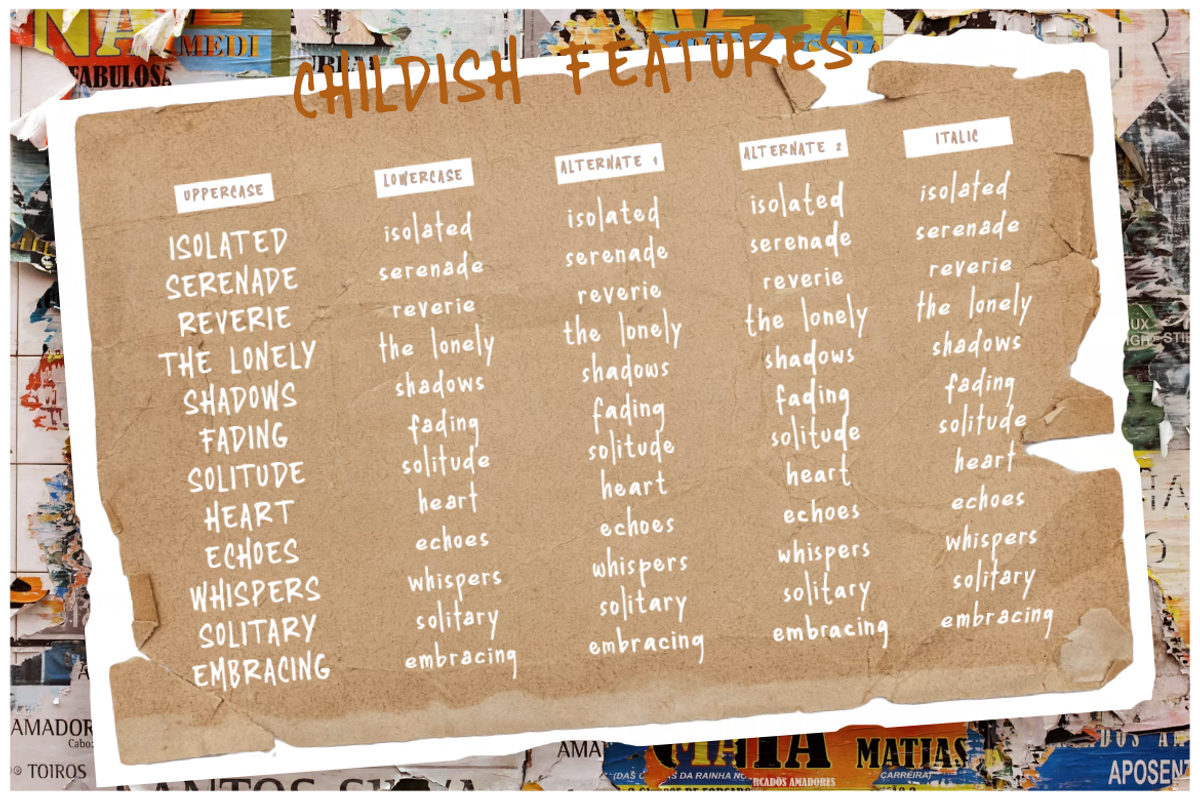 MEDI
FABULOSA
CHILDISH FEATURES
UPPERCASE
ISOLATED
SERENADE
REVERIE
THE LONELY
SHADOWS
FADING
SOLITUDE
HEART
ECHOES
WHISPERS
SOLITARY
EMBRACING
LOWERCASE
isolated
serenade
reverie
the lonely
shadows
fading
solitude
heart
echoes
whispers
solitary
embracing
ALTERNATE 1
isolated
serenade
reverie
the lonely
shadows
fading
solitude
heart
echoes
whispers
solitary
embracing
ALTERNATE 2
isolated
serenade
reverie
the lonely
shadows
fading
solitude
heart
echoes
whispers
solitary
embracing
ITALIC
isolated
serenade
reverie
the lonely
shadows
fading
solitude
heart
echoes
whispers
solitary
embracing
AMADOR
TOIROS
MATIAS
(CARREIRA)
DA RAINHA
RCADOS AMADORES
APOSENT